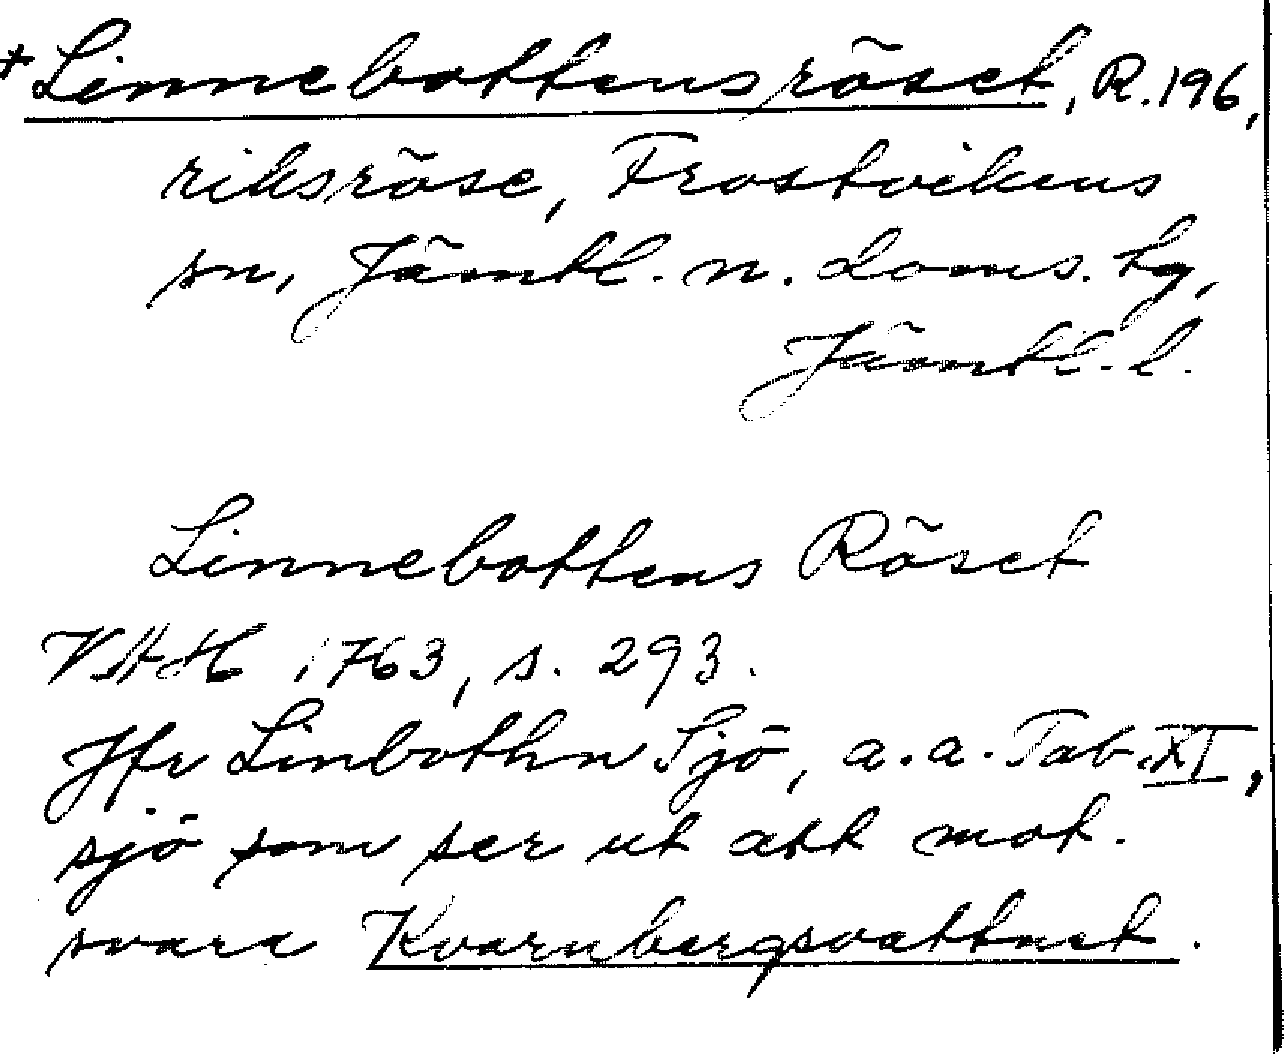 *Linnebottensröset, R.196,
riksröse, Frostvikens
sn, Jämtl. n. doms. tg,
Jämtl. l.
Linnebottens Röset
VAH 1763, s. 293.
Jfr Linbothn Sjö, a.a. Tab. XI,
sjö som ser ut att mot-
svara Kvarnbergsvattnet.